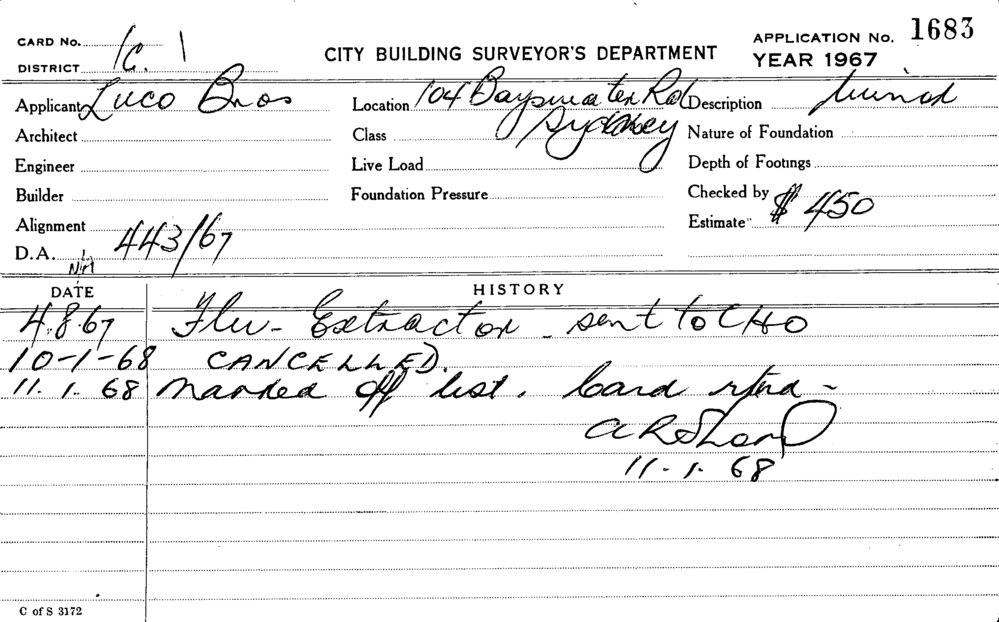 CARD No. 1
DISTRICT 1C.
CITY BUILDING SURVEYOR'S DEPARTMENT
APPLICATION No. 1683
YEAR 1967
Applicant Luco Bros
Location 104 Bayswater Rd
Sydney
Description Minor
Architect
Class
Nature of Foundation
Engineer
Live Load
Depth of Footings
Builder
Foundation Pressure
Checked by
Alignment
Estimate $ 450
D.A. 443/67
DATE
HISTORY
4.8.67 Flu - Extractor - sent to CHO
10-1-68 CANCELLED.
11.1.68 Marked off list. Card rtnd -
11-1-68
C of S 3172